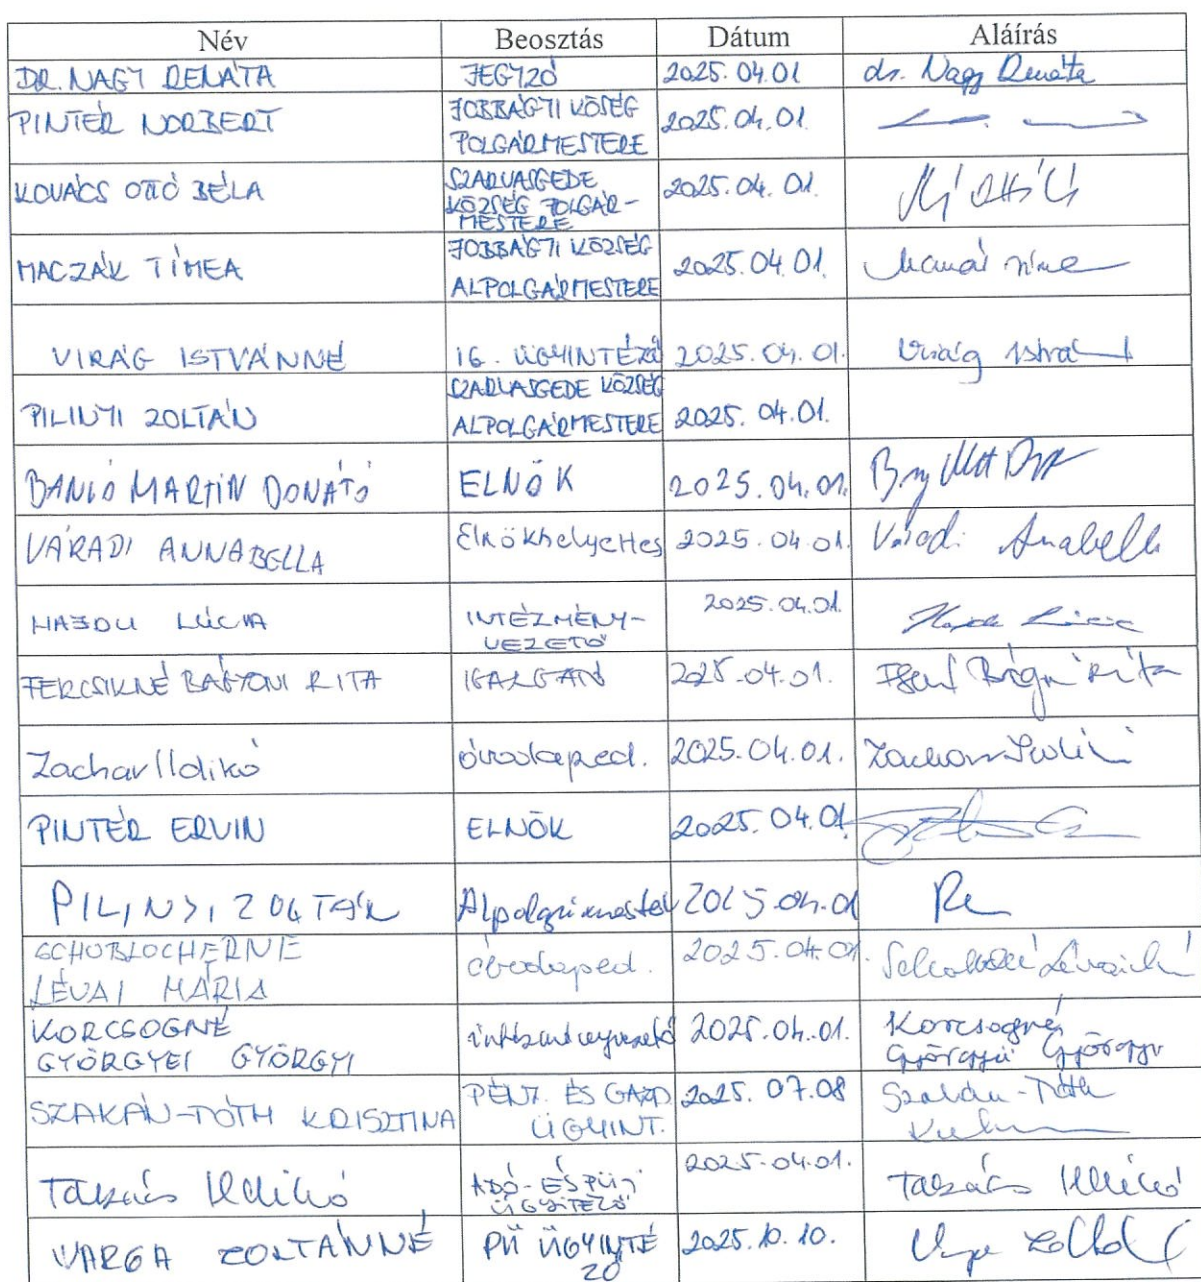 Név Beosztás Dátum Aláírás
DR. NAGY RENÁTA JEGYZŐ 2025.04.01 dr. Nagy Renáta
PINTÉR NORBERT JOBBÁGYI KÖSÉG POLGÁRMESTERE 2025.04.01.
KOVÁCS OTTÓ BÉLA SZARVASGEDE KÖZSÉG POLGÁR-MESTERE 2025.04.01.
MACZÁK TÍMEA JOBBÁGYI KÖZSÉG ALPOLGÁRMESTERE 2025.04.01.
VIRÁG ISTVÁNNÉ IG. ÜGYINTÉZŐ 2025.04.01. Virág Istvá
PILINYI ZOLTÁN SZARVASGEDE KÖZSÉG ALPOLGÁRMESTERE 2025.04.01.
MARTIN DONÁTÓ ELNÖK 2025.04.01.
VÁRADI ANNABELLA Elnökhelyettes 2025.04.01. Váradi Anabella
HAJDU LÚCIA INTÉZMÉNY-VEZETŐ 2025.04.01.
FERCSIKNÉ BÁGYONI RITA IGAZGATÓ 2025.04.01. Rita
Zachar Ildikó óvodaped. 2025.04.01.
PINTÉR ERVIN ELNÖK 2025.04.01.
PILINYI ZOLTÁN Alpolgármester 2025.04.01
LÉVAI MÁRIA óvodaped. 2025.04.01.
KORCSOGNÉ GYÖRGYEI GYÖRGYI intézményvezető 2025.04.01. Korcsogné Györgyei Györgyi
SZAKÁN-TÓTH KRISZTINA PÉNZ. ÉS GAZD ÜGYINT. 2025.07.08 Szakán-Tóth
Takács Ildikó ADÓ-ÉS PÜ-I ÜGYITÉZŐ 2025.04.01. Takács Ildikó
VARGA ZOLTÁNNÉ PÜ ÜGYINTÉZŐ 2025.10.10.